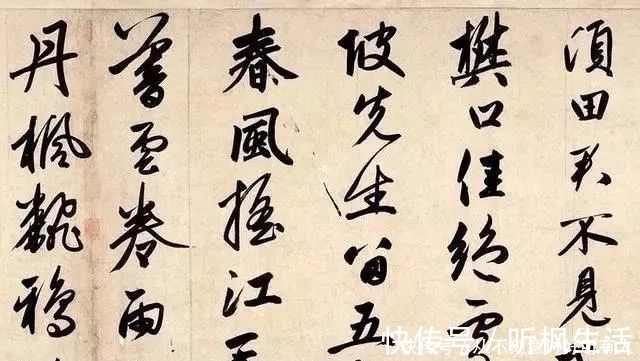 頃田君不見
樊口佳絕處
坡先生留五
春風搖江天
暮雲卷雨
丹楓翻鴉
快传号/听枫生活